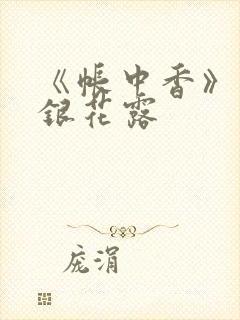 《帐中香》
银花露
庞涓